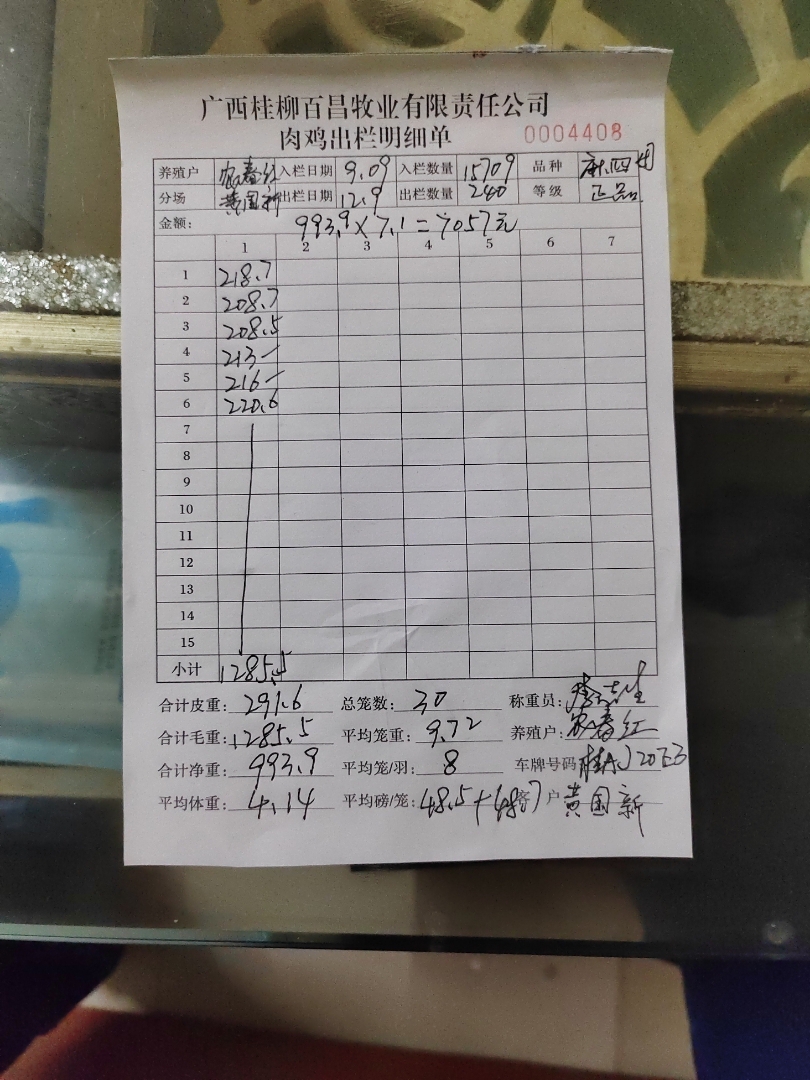 广西桂柳百昌牧业有限责任公司
肉鸡出栏明细单 0004408
养殖户 农春红 入栏日期 9.09 入栏数量 15709 品种
分场 黄国新 出栏日期 12.9 出栏数量 240 等级 正品
金额: 993.9×7.1=7057元
1 2 3 4 5 6 7
1 218.7
2 208.7
3 208.5
4 213-
5 216-
6 220.6
7
8
9
10
11
12
13
14
15
小计 1285.5
合计皮重: 291.6 总笼数: 30 称重员:
合计毛重: 1285.5 平均笼重: 9.72 养殖户: 农春红
合计净重: 993.9 平均笼/羽: 8 车牌号码
平均体重: 4.14 平均磅/笼: 48.5+48.7 客户 黄国新